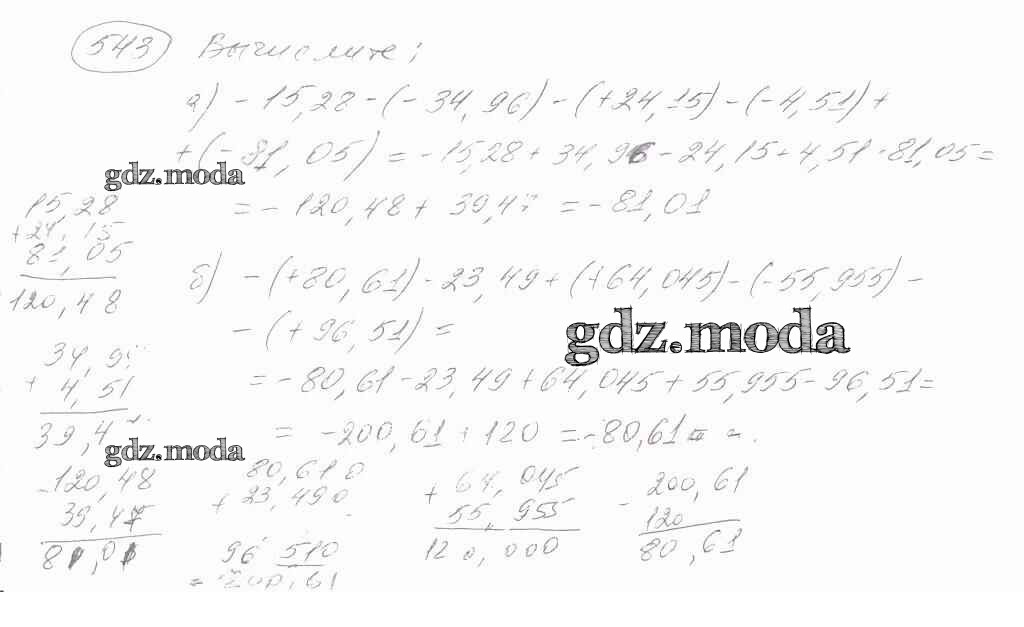 543 Вычислите;
а) - 15,28 - (- 34,96) - (+24,15) - (-4,51) +
+ (-81,05) = -15,28 + 34,96 - 24,15 + 4,51 - 81,05 =
gdz.moda
= - 120,48 + 39,47 = - 81,01
15,28
+ 24,15
81,05
120,48
б) - (+80,61) - 23,49 + (+64,045) - (-55,955) -
- (+ 96,51) =
gdz.moda
= - 80,61 - 23,49 + 64,045 + 55,955 - 96,51 =
= -200,61 + 120 = -80,61
+ 4,51
39,4
gdz.moda
-120,48
39,47
81,01
80,610
+ 23,490
96 510
= 200,61
+ 64,045
55,955
120,000
- 200,61
120
80,61